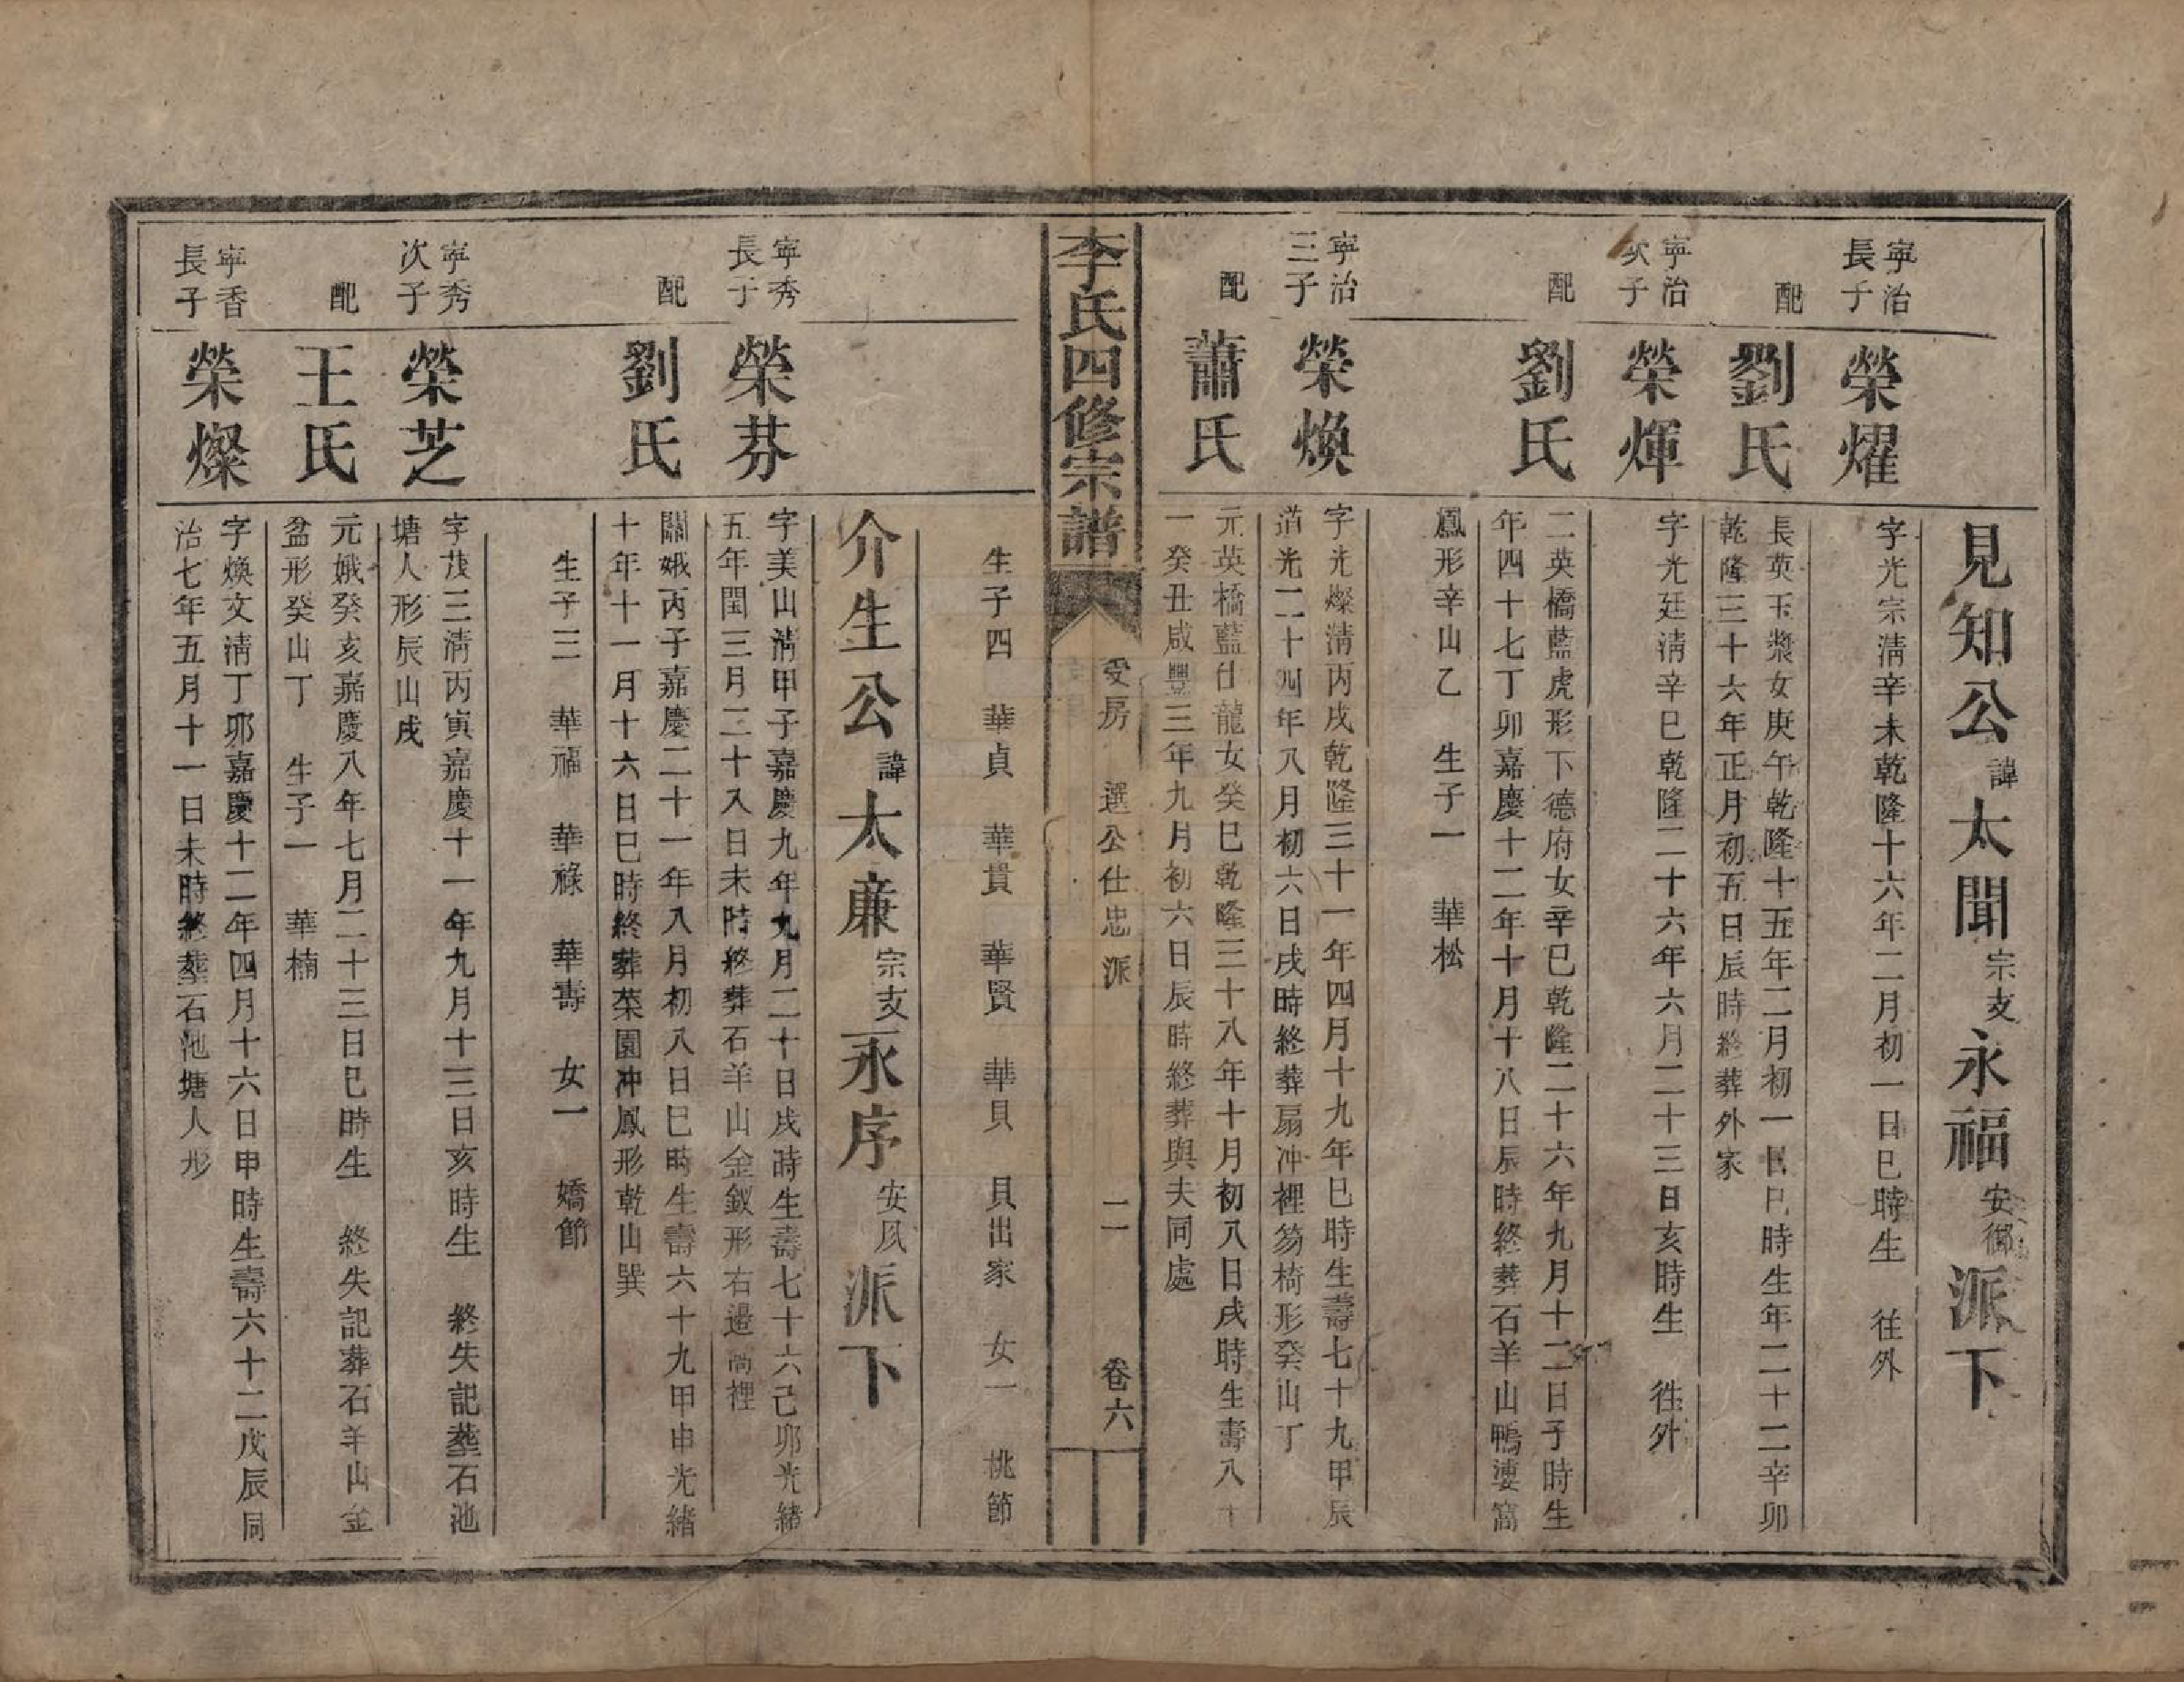 見知公諱太聞宗支永福安御派下
寧治長子
榮燿
字光宗淸辛未乾隆十六年二月初一日巳時生　往外
配
劉氏
長英玉漿女庚午乾隆十五年二月初一日巳時生年二十二辛卯
乾隆三十六年正月初五日辰時終葬外家
寧治次子
榮煇
字光廷淸辛巳乾隆二十六年六月二十三日亥時生　徃外
配
劉氏
二英橋藍虎形下德府女辛巳乾隆二十六年九月十二日子時生
年四十七丁卯嘉慶十二年十月十八日辰時終葬石羊山鴨淒窩
鳳形辛山乙　生子一　華松
寧治三子
榮煥
字光燦淸丙戌乾隆三十一年四月十九年巳時生壽七十九甲辰
道光二十四年八月初六日戌時終葬扇冲裡笏椅形癸山丁
配
蕭氏
元英橋藍仕龍女癸巳乾隆三十八年十月初八日戌時生壽八十
一癸丑咸豐三年九月初六日辰時終葬與夫同處
李氏四修宗譜
受房　選公仕忠派　二　卷六
生子四　華貞　華貫　華賢　華貝　貝出家　女一　桃節
介生公諱太亷宗支永序安夙派下
寧秀長子
榮芬
字美山淸甲子嘉慶九年九月二十日戌時生壽七十六己卯光緒
五年閏三月二十八日未時終葬石羊山金釵形右邊尚裡
配
劉氏
關娥丙子嘉慶二十一年八月初八日巳時生壽六十九甲申光緒
十年十一月十六日巳時終葬菜園冲鳳形乾山巽
生子三　華福　華祿　華壽　女一　嬌節
寧秀次子
榮芝
字茂三淸丙寅嘉慶十一年九月十三日亥時生　終失記葬石池
塘人形辰山戌
配
王氏
元娥癸亥嘉慶八年七月二十三日巳時生　終失記葬石羊山金
盆形癸山丁　生子一　華楠
寧香長子
榮燦
字煥文淸丁卯嘉慶十二年四月十六日申時生壽六十二戊辰同
治七年五月十一日未時終葬石池塘人形